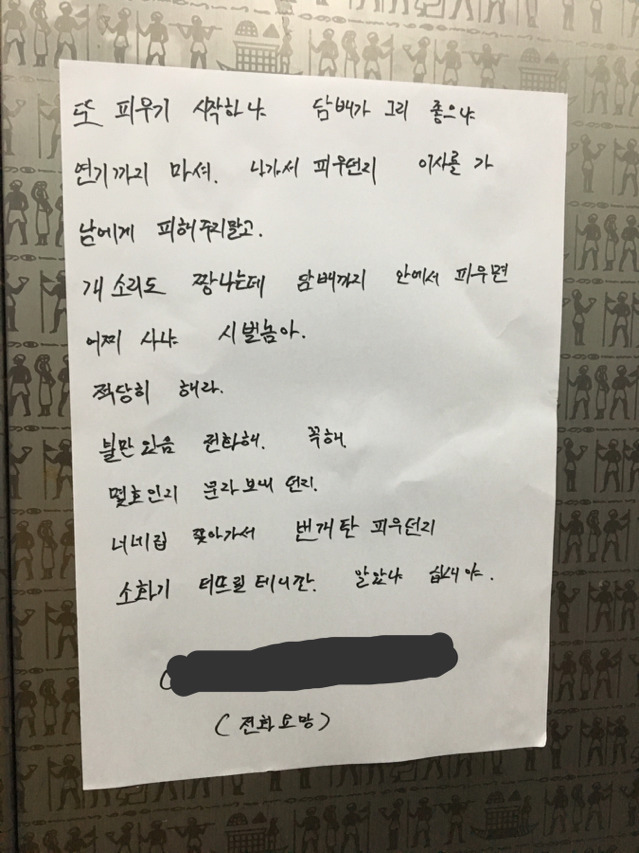 또 피우기 시작하냐 담배가 그리 좋으냐
연기까지 마셔. 나가서 피우던지 이사를 가
남에게 피해주지말고.
개 소리도 짱나는데 담배까지 안에서 피우면
어찌 사냐 시벌놈아.
적당히 해라.
불만 있음 전화해. 꼭해.
몇호인지 문자보내 던지.
너네집 쫓아가서 번개탄 피우던지
소화기 터뜨릴테니깐. 알았냐 십새야.
(전화요망)